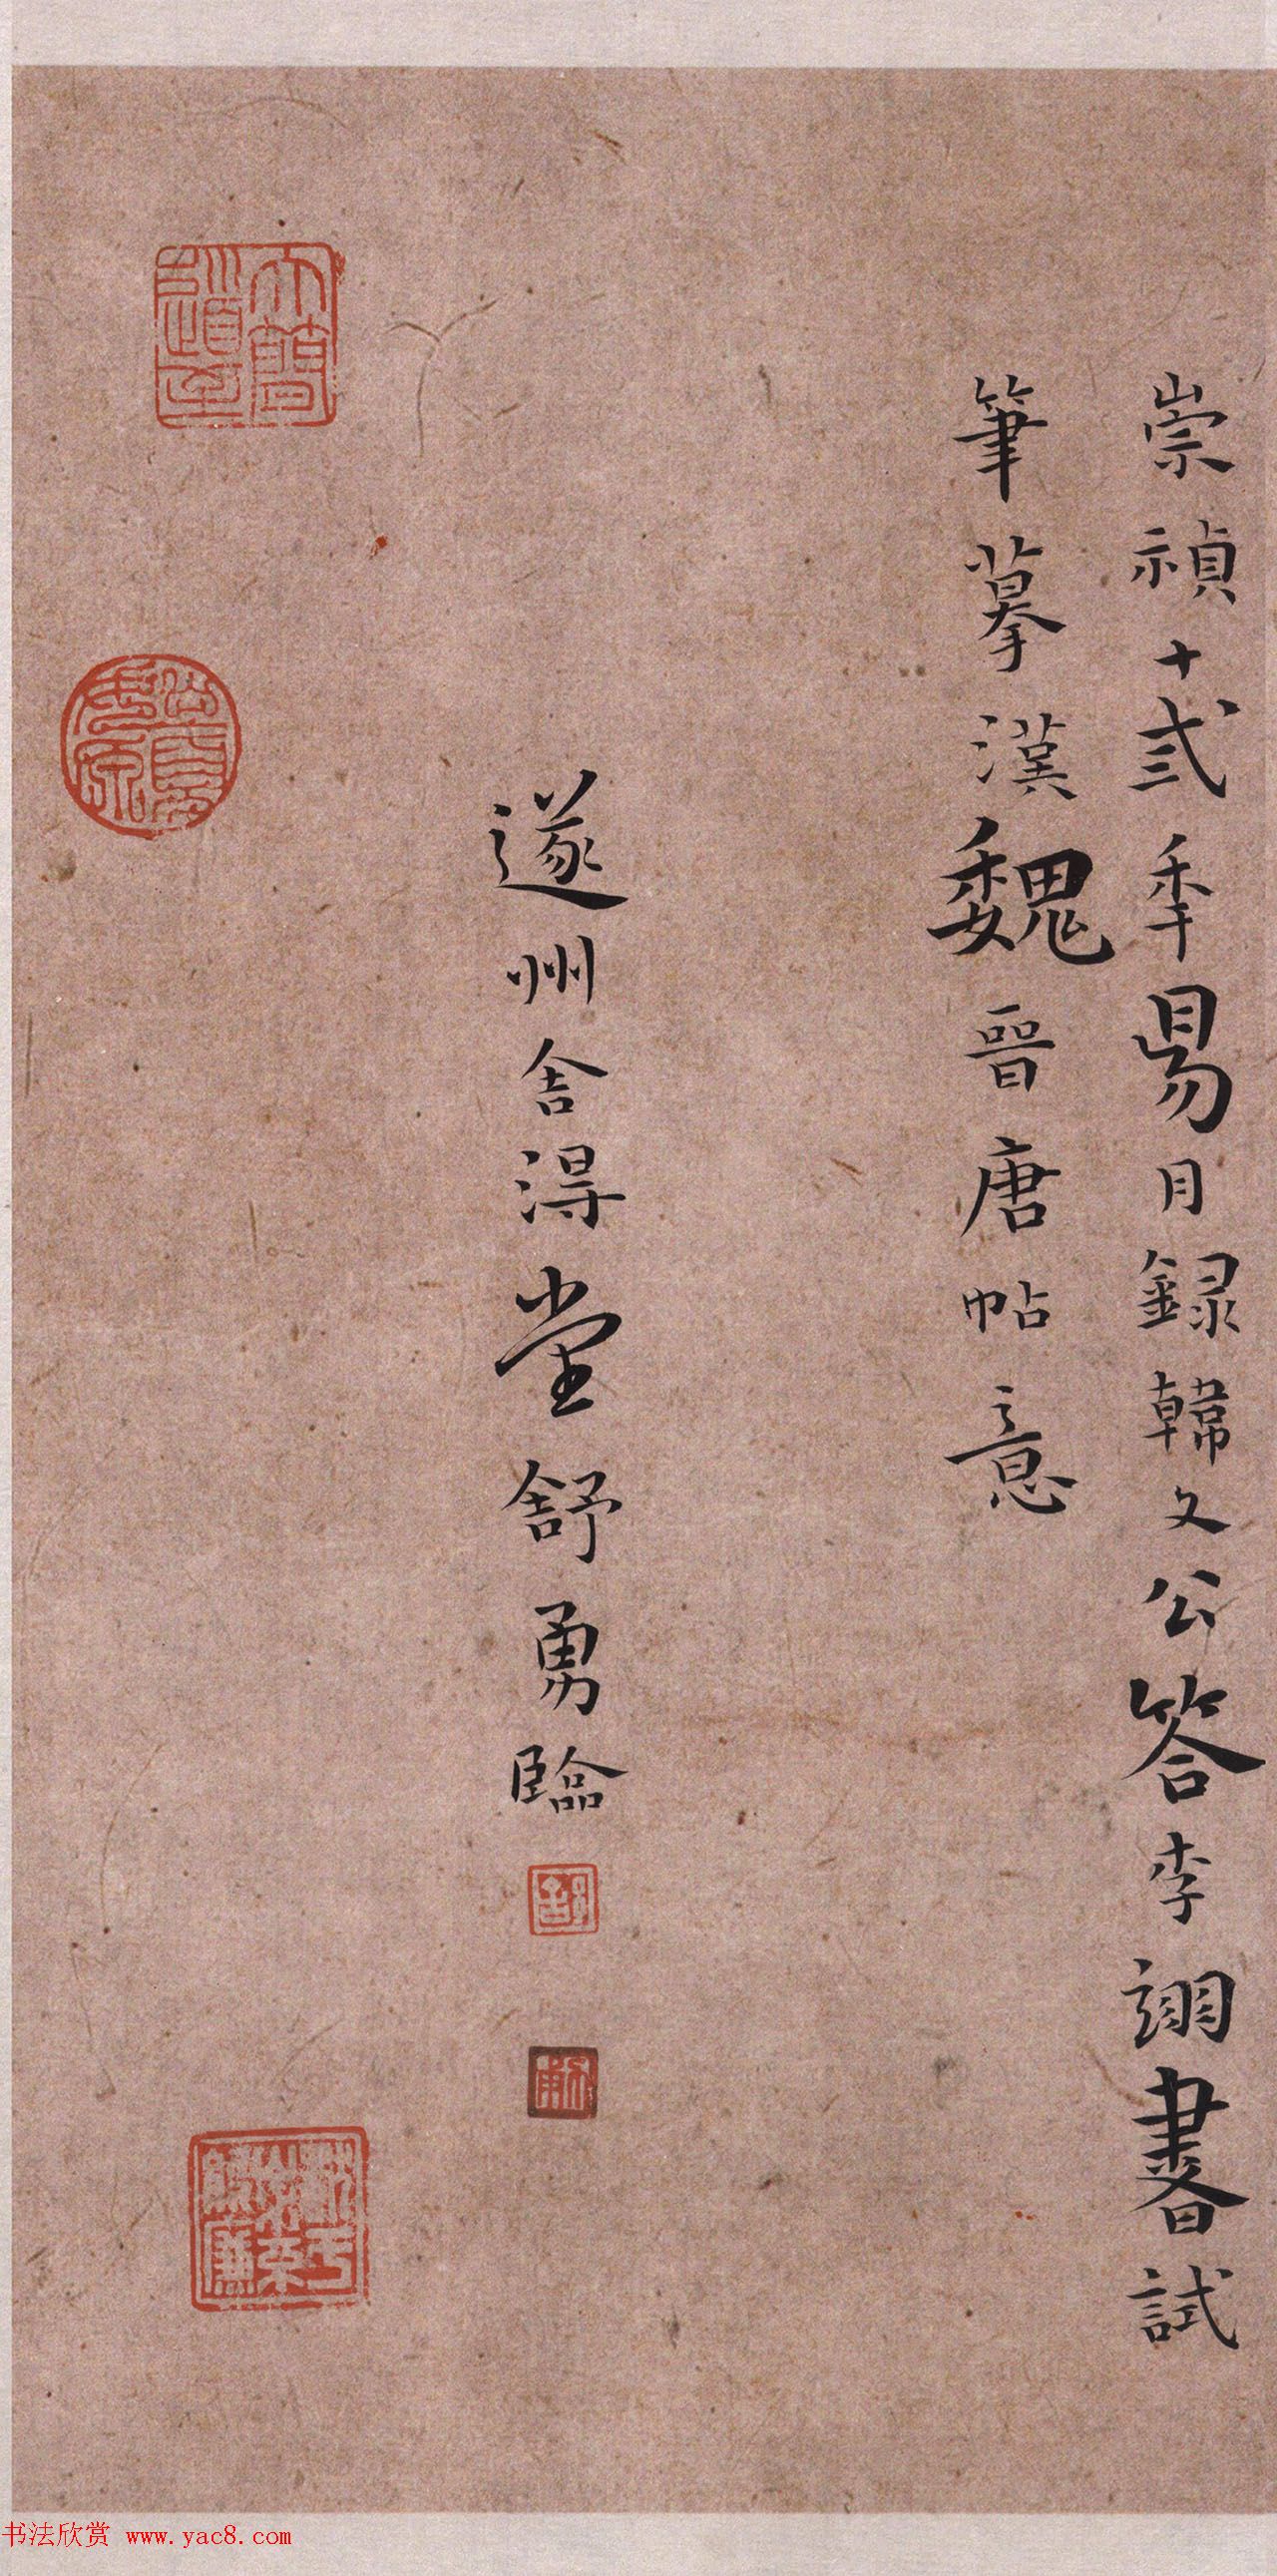 崇禎十弍秊昜月録韓文公答李翊書試
筆摹漢魏晉唐帖意
遂州舍淂堂舒勇臨
大簡
書法欣赏 www.yac8.com